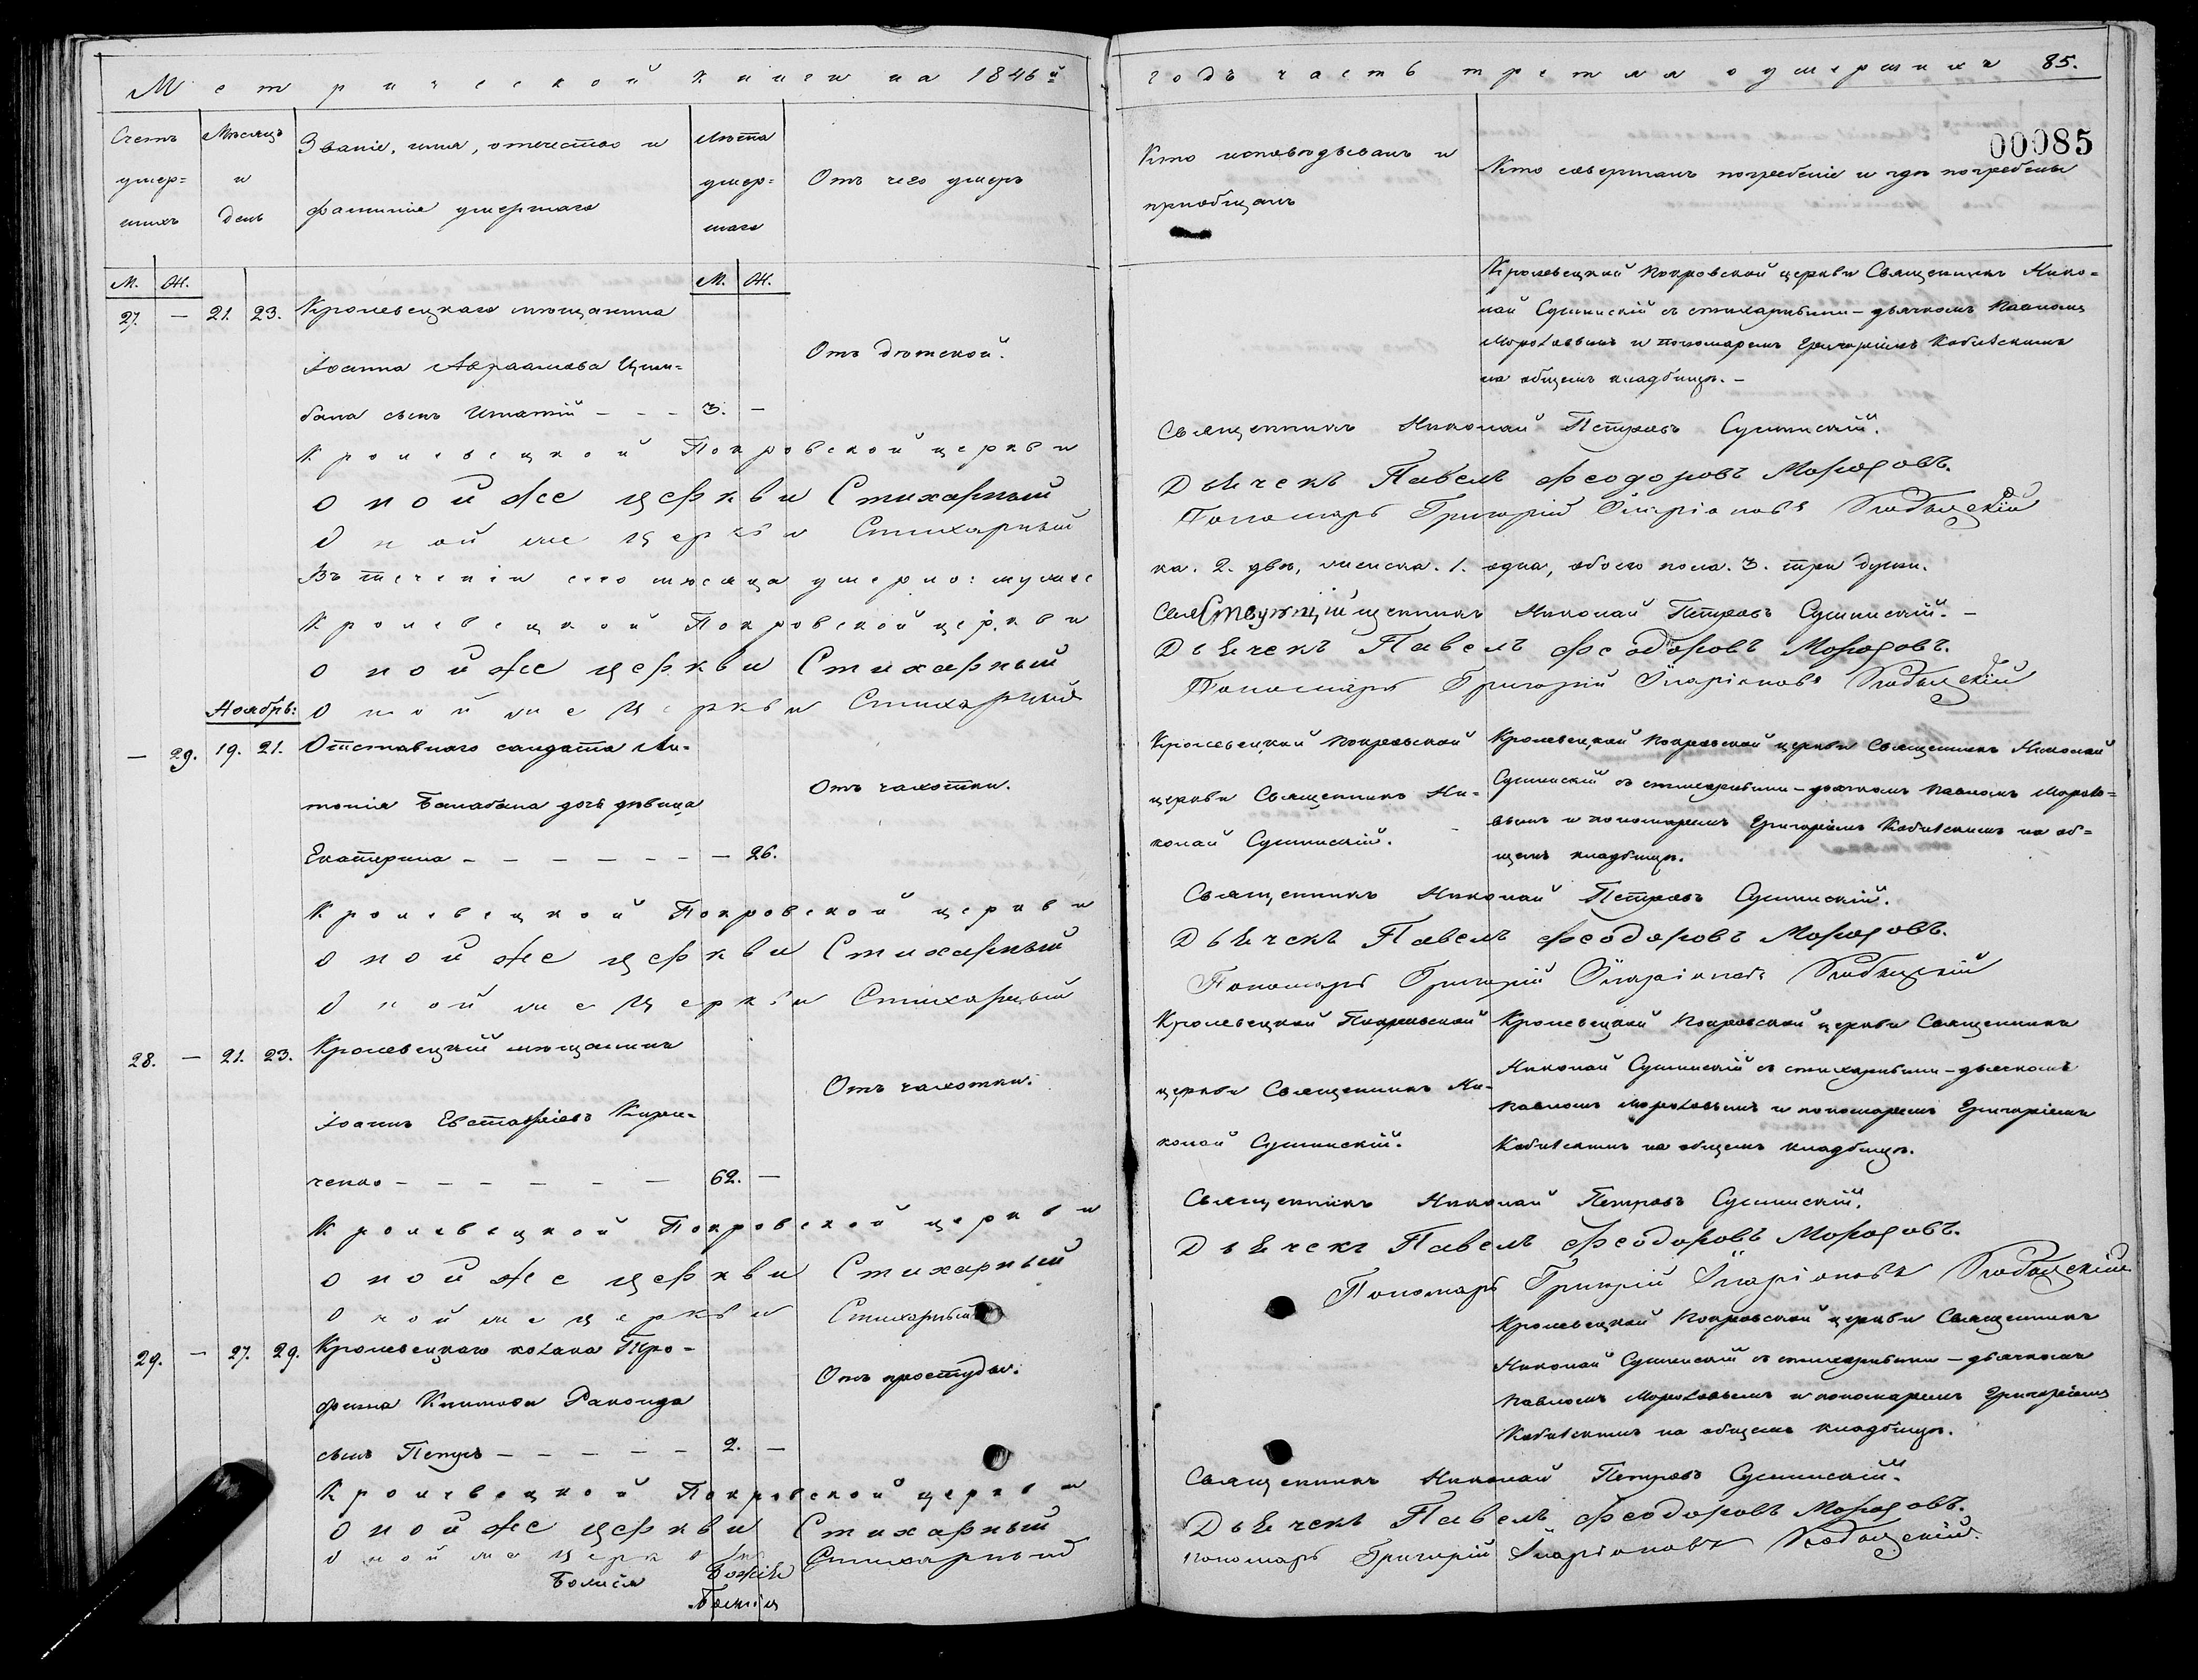 Метрической книги на 1846й
Счетъ умер= шихъ
Мѣсяцъ и день
Званіе, имя, отечество и фамилія умершаго
Лѣта умер= шаго
Отъ чего умеръ
М. Ж.
М. Ж.
27. — 21. 23. Кролевецкаго мѣщанина
Іоанна Авраамова Цим=
бала сынъ Игнатій — — — 3. —
Отъ дѣтской.
Кролевецкой Покровской церкви
оной же церкви Стихарный
Оной же церкви Стихарный
Въ теченіи сего мѣсяца умерло: мужес
Кролевецкой Покровской церкви
оной же церкви Стихарный
Ноябрь: Оной же Церкви Стихарный
— 29. 19. 21. Отставнаго солдата Ан=
тонія Балабана дочь дѣвица
Екатерина — — — — — — — 26.
Отъ чахотки.
Кролевецкой Покровской церкви
оной же церкви Стихарный
Оной же Церкви Стихарный
28. — 21. 23. Кролевецкій мѣщанинъ
Іоаннъ Евстафіевъ Кири=
ченко — — — — — — 62. —
Отъ чахотки.
Кролевецкой Покровской церкви
оной же церкви Стихарный
Оной же церкви Стихарный
29. — 27. 29. Кролевецкаго козака Тро=
фима Климова
сынъ Петръ — — — — — 2. —
Отъ простуды.
Кролевецкой Покровской церкви
оной же церкви Стихарный
Оной же Церкви Стихарный
годъ часть третія о умершихъ 85.
00085
Кто исповѣдывалъ и
пріобщалъ
Кто совершалъ погребеніе и гдѣ погребены
Кролевецкой Покровской церкви Священникъ Нико=
лай Сушинскій съ стихарными – дьячкомъ Павломъ
Морозовымъ и пономаремъ Григоріемъ
на общемъ кладбищѣ. –
Священникъ Николай Петровъ Сушинскій.
Дьячекъ Павелъ Феодоровъ Морозовъ.
Пономарь Григорій Иларіоновъ
ка. 2. два, женска. 1. одна, обоего пола. 3. три души.
Николай Петровъ Сушинскій. –
Дьячекъ Павелъ Феодоровъ Морозовъ.
Пономарь Григорій Иларіоновъ
Кролевецкой Покровской
церкви Священникъ Ни=
колай Сушинскій.
Кролевецкой Покровской церкви Священникъ Николай
Сушинскій съ стихарными – дьячкомъ Павломъ Морозо=
вымъ и пономаремъ Григоріемъ на об=
щемъ кладбищѣ.
Священникъ Николай Петровъ Сушинскій.
Дьячекъ Павелъ Феодоровъ Морозовъ.
Пономарь Григорій Иларіоновъ
Кролевецкой Покровской
церкви Священникъ Ни=
колай Сушинскій.
Кролевецкой Покровской церкви Священникъ
Николай Сушинскій съ стихарными – дьячкомъ
Павломъ Морозовымъ и пономаремъ Григоріемъ
на общемъ кладбищѣ.
Священникъ Николай Петровъ Сушинскій.
Дьячекъ Павелъ Феодоровъ Морозовъ.
Пономарь Григорій Иларіоновъ
Кролевецкой Покровской церкви Священникъ
Николай Сушинскій съ стихарными – дьячкомъ
Павломъ Морозовымъ и пономаремъ Григоріемъ
на общемъ кладбищѣ.
Священникъ Николай Петровъ Сушинскій.
Дьячекъ Павелъ Феодоровъ Морозовъ.
Пономарь Григорій Иларіоновъ